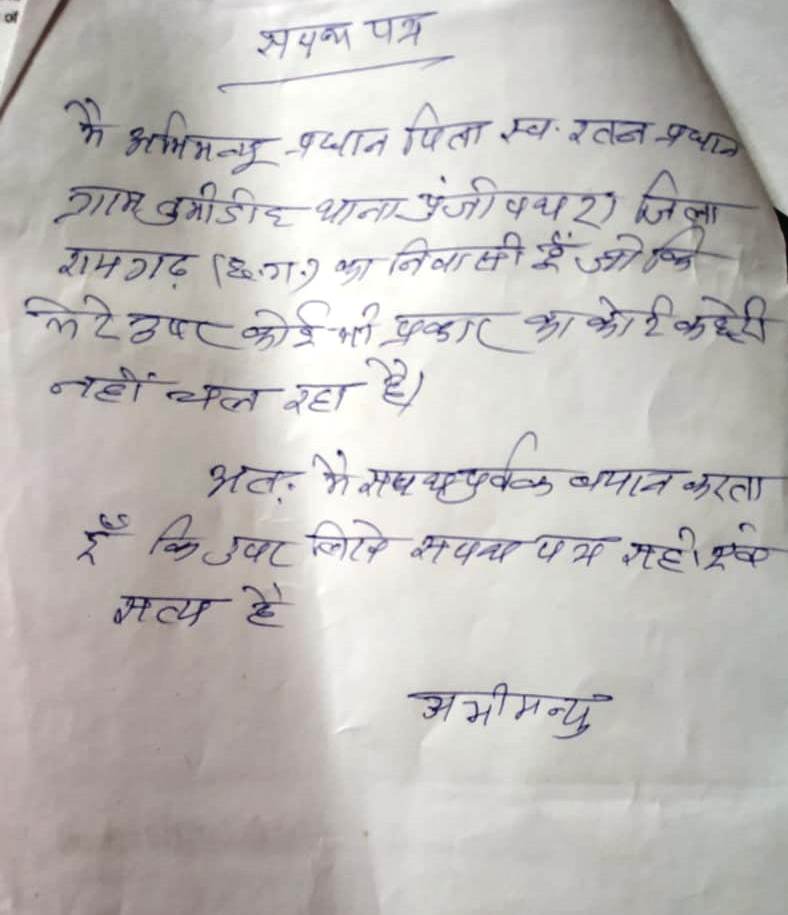 of
सपथ पत्र
मै अभिमन्यु प्रधान पिता स्व. रतन प्रधान
ग्राम तुमीडीह थाना पुंजीपथरा जिला
रायगढ़ (छ.ग.) का निवासी हूँ जो कि
मेरे उपर कोई भी प्रकार का कोर्ट कछेरी
नहीं चल रहा है।
अतः मै सपथपुर्वक बयान करता
हूँ कि उपर लिखे सपथ पत्र सही एवं
सत्य है
अभीमन्यु